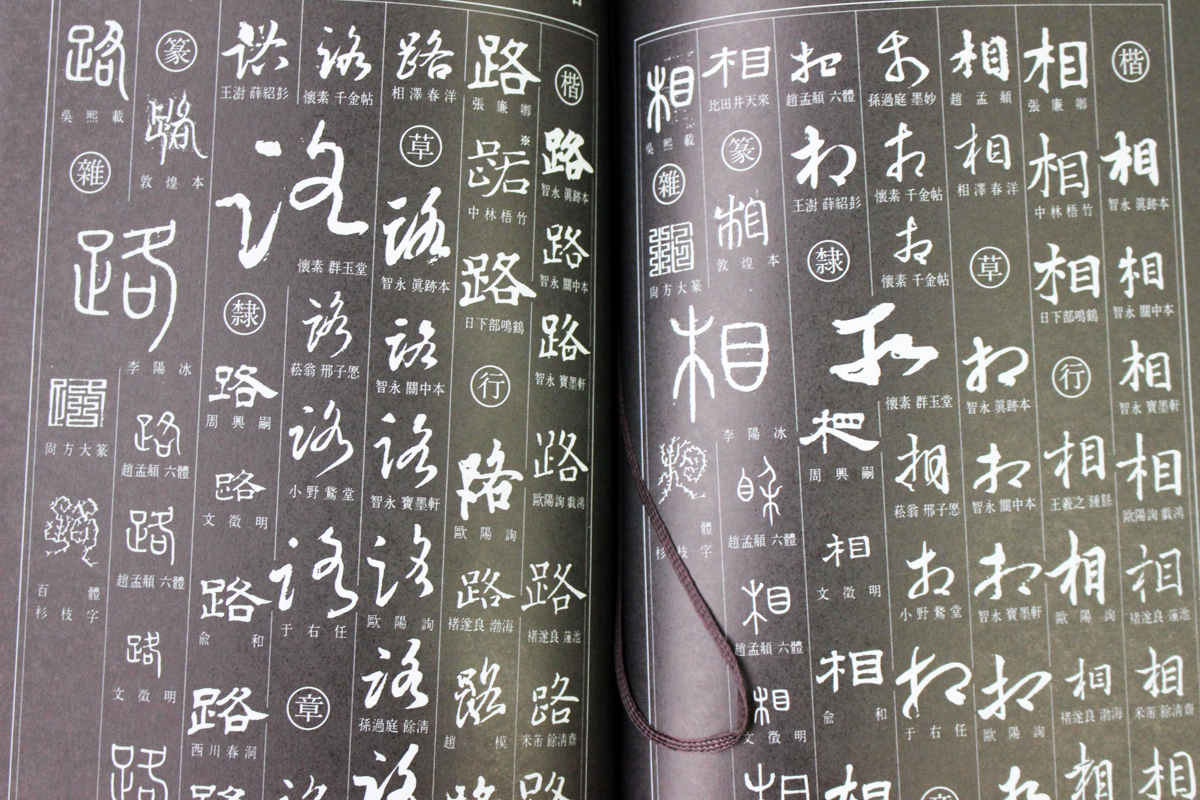 楷
相
智永 眞跡本
相
智永 關中本
相
智永 寶墨軒
相
歐陽詢 戱鴻
相
褚遂良 蓮池
相
米芾 餘清齋
相
相
張廉卿
相
中林梧竹
相
日下部鳴鶴
行
相
王羲之 鍾繇
相
歐陽詢
相
褚遂良 渤海
相
相
趙孟頫
相
相澤春洋
草
相
智永 眞跡本
相
智永 關中本
相
智永 寶墨軒
相
歐陽詢
相
相
孫過庭 墨妙
相
懷素 千金帖
相
懷素 千金帖
相
懷素 群玉堂
相
菘翁 邢子愿
相
小野鵞堂
相
于右任
章
相
趙孟頫 六體
相
王澍 薛紹彭
隸
相
周興嗣
相
文徵明
相
兪和
相
相
比田井天來
篆
相
敦煌本
相
李陽冰
相
趙孟頫 六體
相
趙孟頫 六體
相
文徵明
相
相
吳熙載
雜
相
尙方大篆
相
體
杉枝字
楷
路
智永 眞跡本
路
智永 關中本
路
智永 寶墨軒
路
歐陽詢 戱鴻
路
褚遂良 蓮池
路
米芾 餘清齋
路
路
張廉卿
※
路
中林梧竹
路
日下部鳴鶴
行
路
歐陽詢
路
褚遂良 渤海
路
趙模
路
路
相澤春洋
草
路
智永 眞跡本
路
智永 關中本
路
智永 寶墨軒
路
歐陽詢
路
孫過庭 餘清
路
路
懷素 千金帖
路
懷素 群玉堂
路
菘翁 邢子愿
路
小野鵞堂
路
于右任
章
路
王澍 薛紹彭
隸
路
周興嗣
路
文徵明
路
兪和
路
西川春洞
路
篆
路
敦煌本
路
李陽冰
路
趙孟頫 六體
路
趙孟頫 六體
路
文徵明
路
路
吳熙載
雜
路
尙方大篆
路
百體
杉枝字